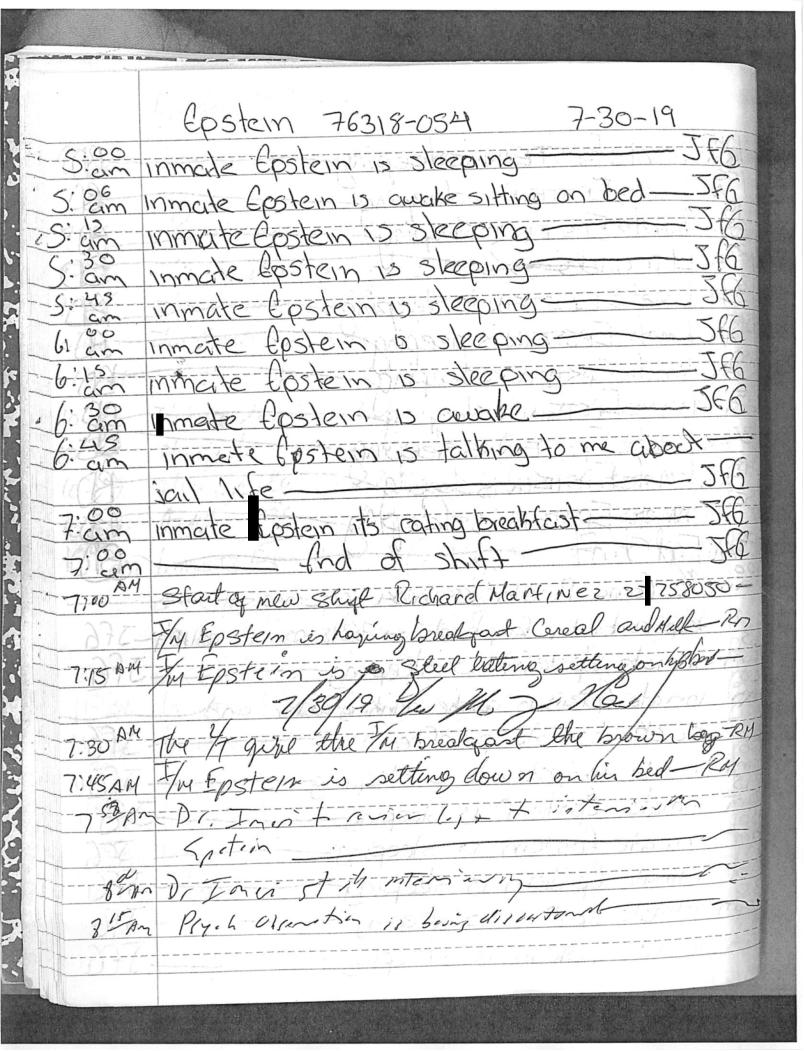 Epstein 76318-054 7-30-19
5:00 am inmate Epstein is sleeping JFG
5:06 am inmate Epstein is awake sitting on bed JFG
5:15 am inmate Epstein is sleeping JFG
5:30 am inmate Epstein is sleeping JFG
5:45 am inmate Epstein is sleeping JFG
6:00 am inmate Epstein is sleeping JFG
6:15 am inmate Epstein is sleeping JFG
6:30 am inmate Epstein is awake JFG
6:45 am inmate Epstein is talking to me about
jail life JFG
7:00 am inmate Epstein its eating breakfast JFG
7:00 am End of shift JFG
7:00 AM Start of new shift Richard Martinez 258050
I/M Epstein is having breakfast Cereal and Milk RM
7:15 AM I/M Epstein is steel eating setting on his bed
7/30/19
7:30 AM The give the I/M breakfast the brown bag RM
7:45 AM I/M Epstein is setting down on his bed RM
AM Dr. to review log
Epstein
8 00 AM Dr. interviewing
8 15 AM Psych observation is being